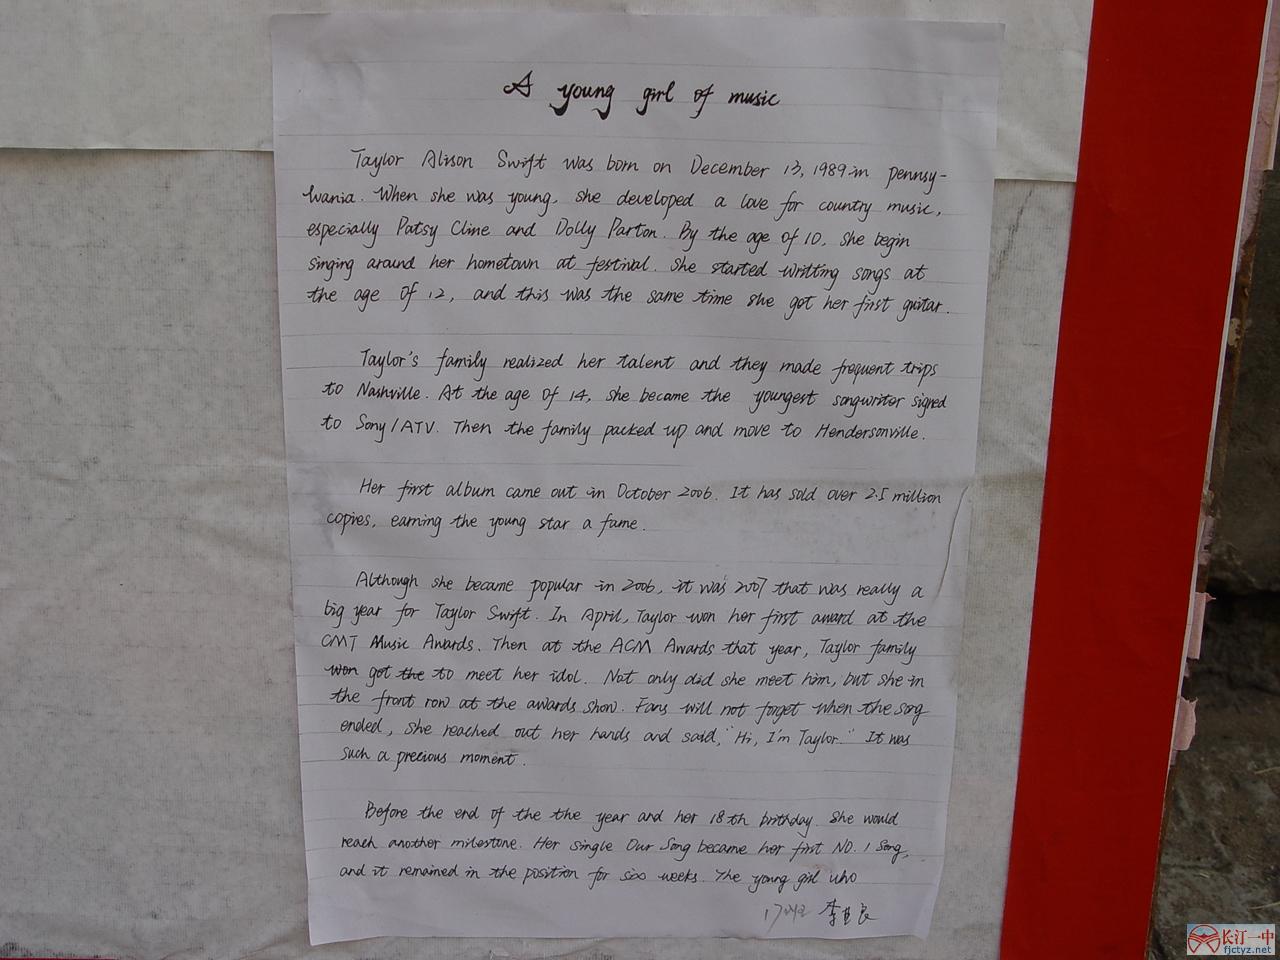 A young girl of music
Taylor Alison Swift was born on December 13, 1989 in pennsy-
lvania. When she was young, she developed a love for country music,
especially Patsy Cline and Dolly Parton. By the age of 10, she begin
singing around her hometown at festival. She started writting songs at
the age of 12, and this was the same time she got her first guitar.
Taylor's family realized her talent and they made frequent trips
to Nashville. At the age of 14, she became the youngest songwriter signed
to Sony/ATV. Then the family packed up and move to Hendersonville.
Her first album came out in October 2006. It has sold over 2.5 million
copies, earning the young star a fame.
Although she became popular in 2006, it was 2007 that was really a
big year for Taylor Swift. In April, Taylor won her first award at the
CMT Music Awards. Then at the ACM Awards that year, Taylor family
won got the to meet her idol. Not only did she meet him, but she in
the front row at the awards show. Fans will not forget when the song
ended, she reached out her hands and said, "Hi, I'm Taylor." It was
such a precious moment.
Before the end of the the year and her 18th birthday. She would
reach another milestone. Her single Our Song became her first NO. 1 Song,
and it remained in the position for six weeks. The young girl who
李
长汀一中
fjctyz.net